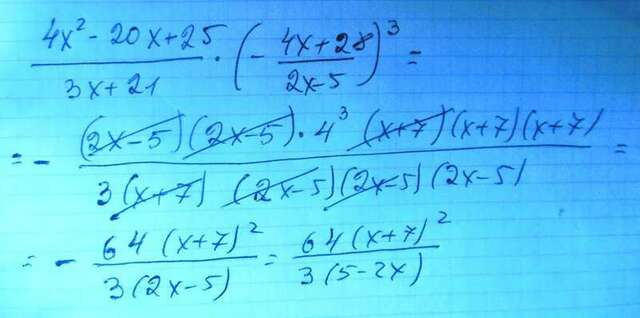 (4x² - 20x + 25)/(3x + 21) · (- (4x + 28)/(2x - 5))³ =
= - ((2x - 5)(2x - 5) · 4³ (x + 7)(x + 7)(x + 7))/(3(x + 7)(2x - 5)(2x - 5)(2x - 5)) =
= - (64(x + 7)²)/(3(2x - 5)) = (64(x + 7)²)/(3(5 - 2x))